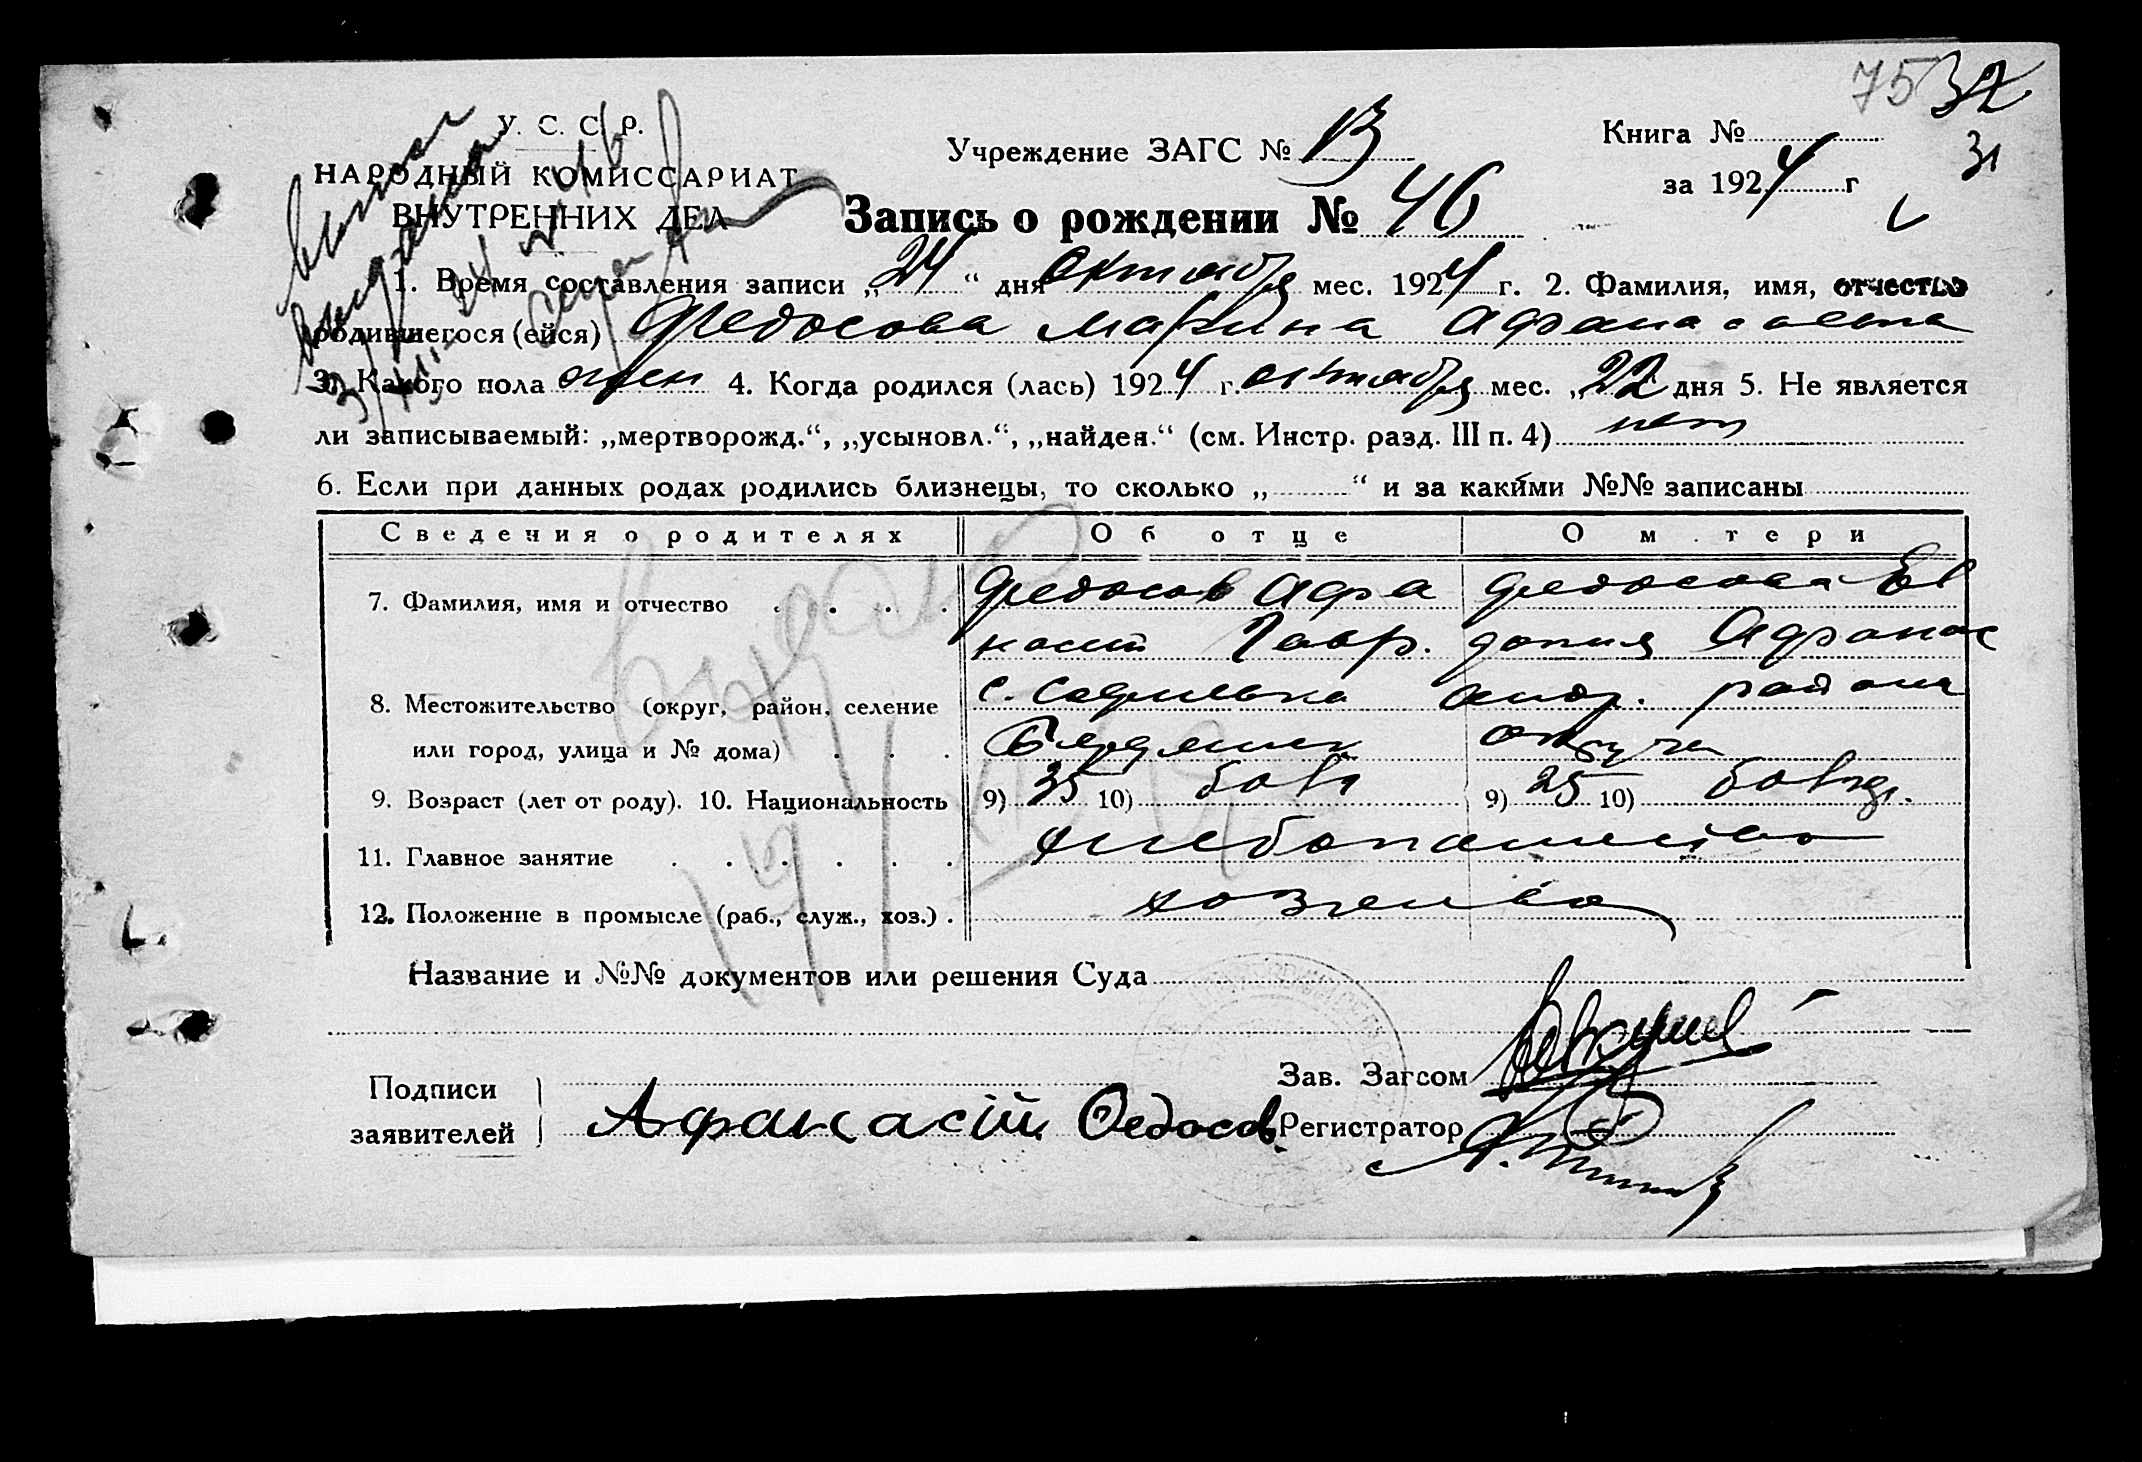 75 32
31
У. С. С. Р.
НАРОДНЫЙ КОМИССАРИАТ
ВНУТРЕННИХ ДЕЛ
Учреждение ЗАГС № 13
Книга №
за 1924 г
Запись о рождении № 46
1. Время составления записи „24“ дня октября мес. 1924 г. 2. Фамилия, имя, отчество
родившегося (ейся) Федосова Марина Афанасовна
3. Какого пола жен 4. Когда родился (лась) 1924 г. октября мес. „22 дня 5. Не является
ли записываемый: „мертворожд.“, „усыновл.“, „найден.“ (см. Инстр. разд. III п. 4) нет
6. Если при данных родах родились близнецы, то сколько „ “ и за какими №№ записаны
Сведения о родителях Об отце О м.тери
7. Фамилия, имя и отчество Федосов Афа Федосова Ев
насий Гавр. докия Афанас
8. Местожительство (округ, район, селение с. Софиевка Андр. района
или город, улица и № дома) Бердянск округа
9. Возраст (лет от роду). 10. Национальность 9) 35 10) 9) 25 10)
11. Главное занятие хлебопашество
12. Положение в промысле (раб., служ., хоз.) хозяева
Название и №№ документов или решения Суда
Подписи
заявителей
Афанасій Федосов
Зав. Загсом
Регистратор